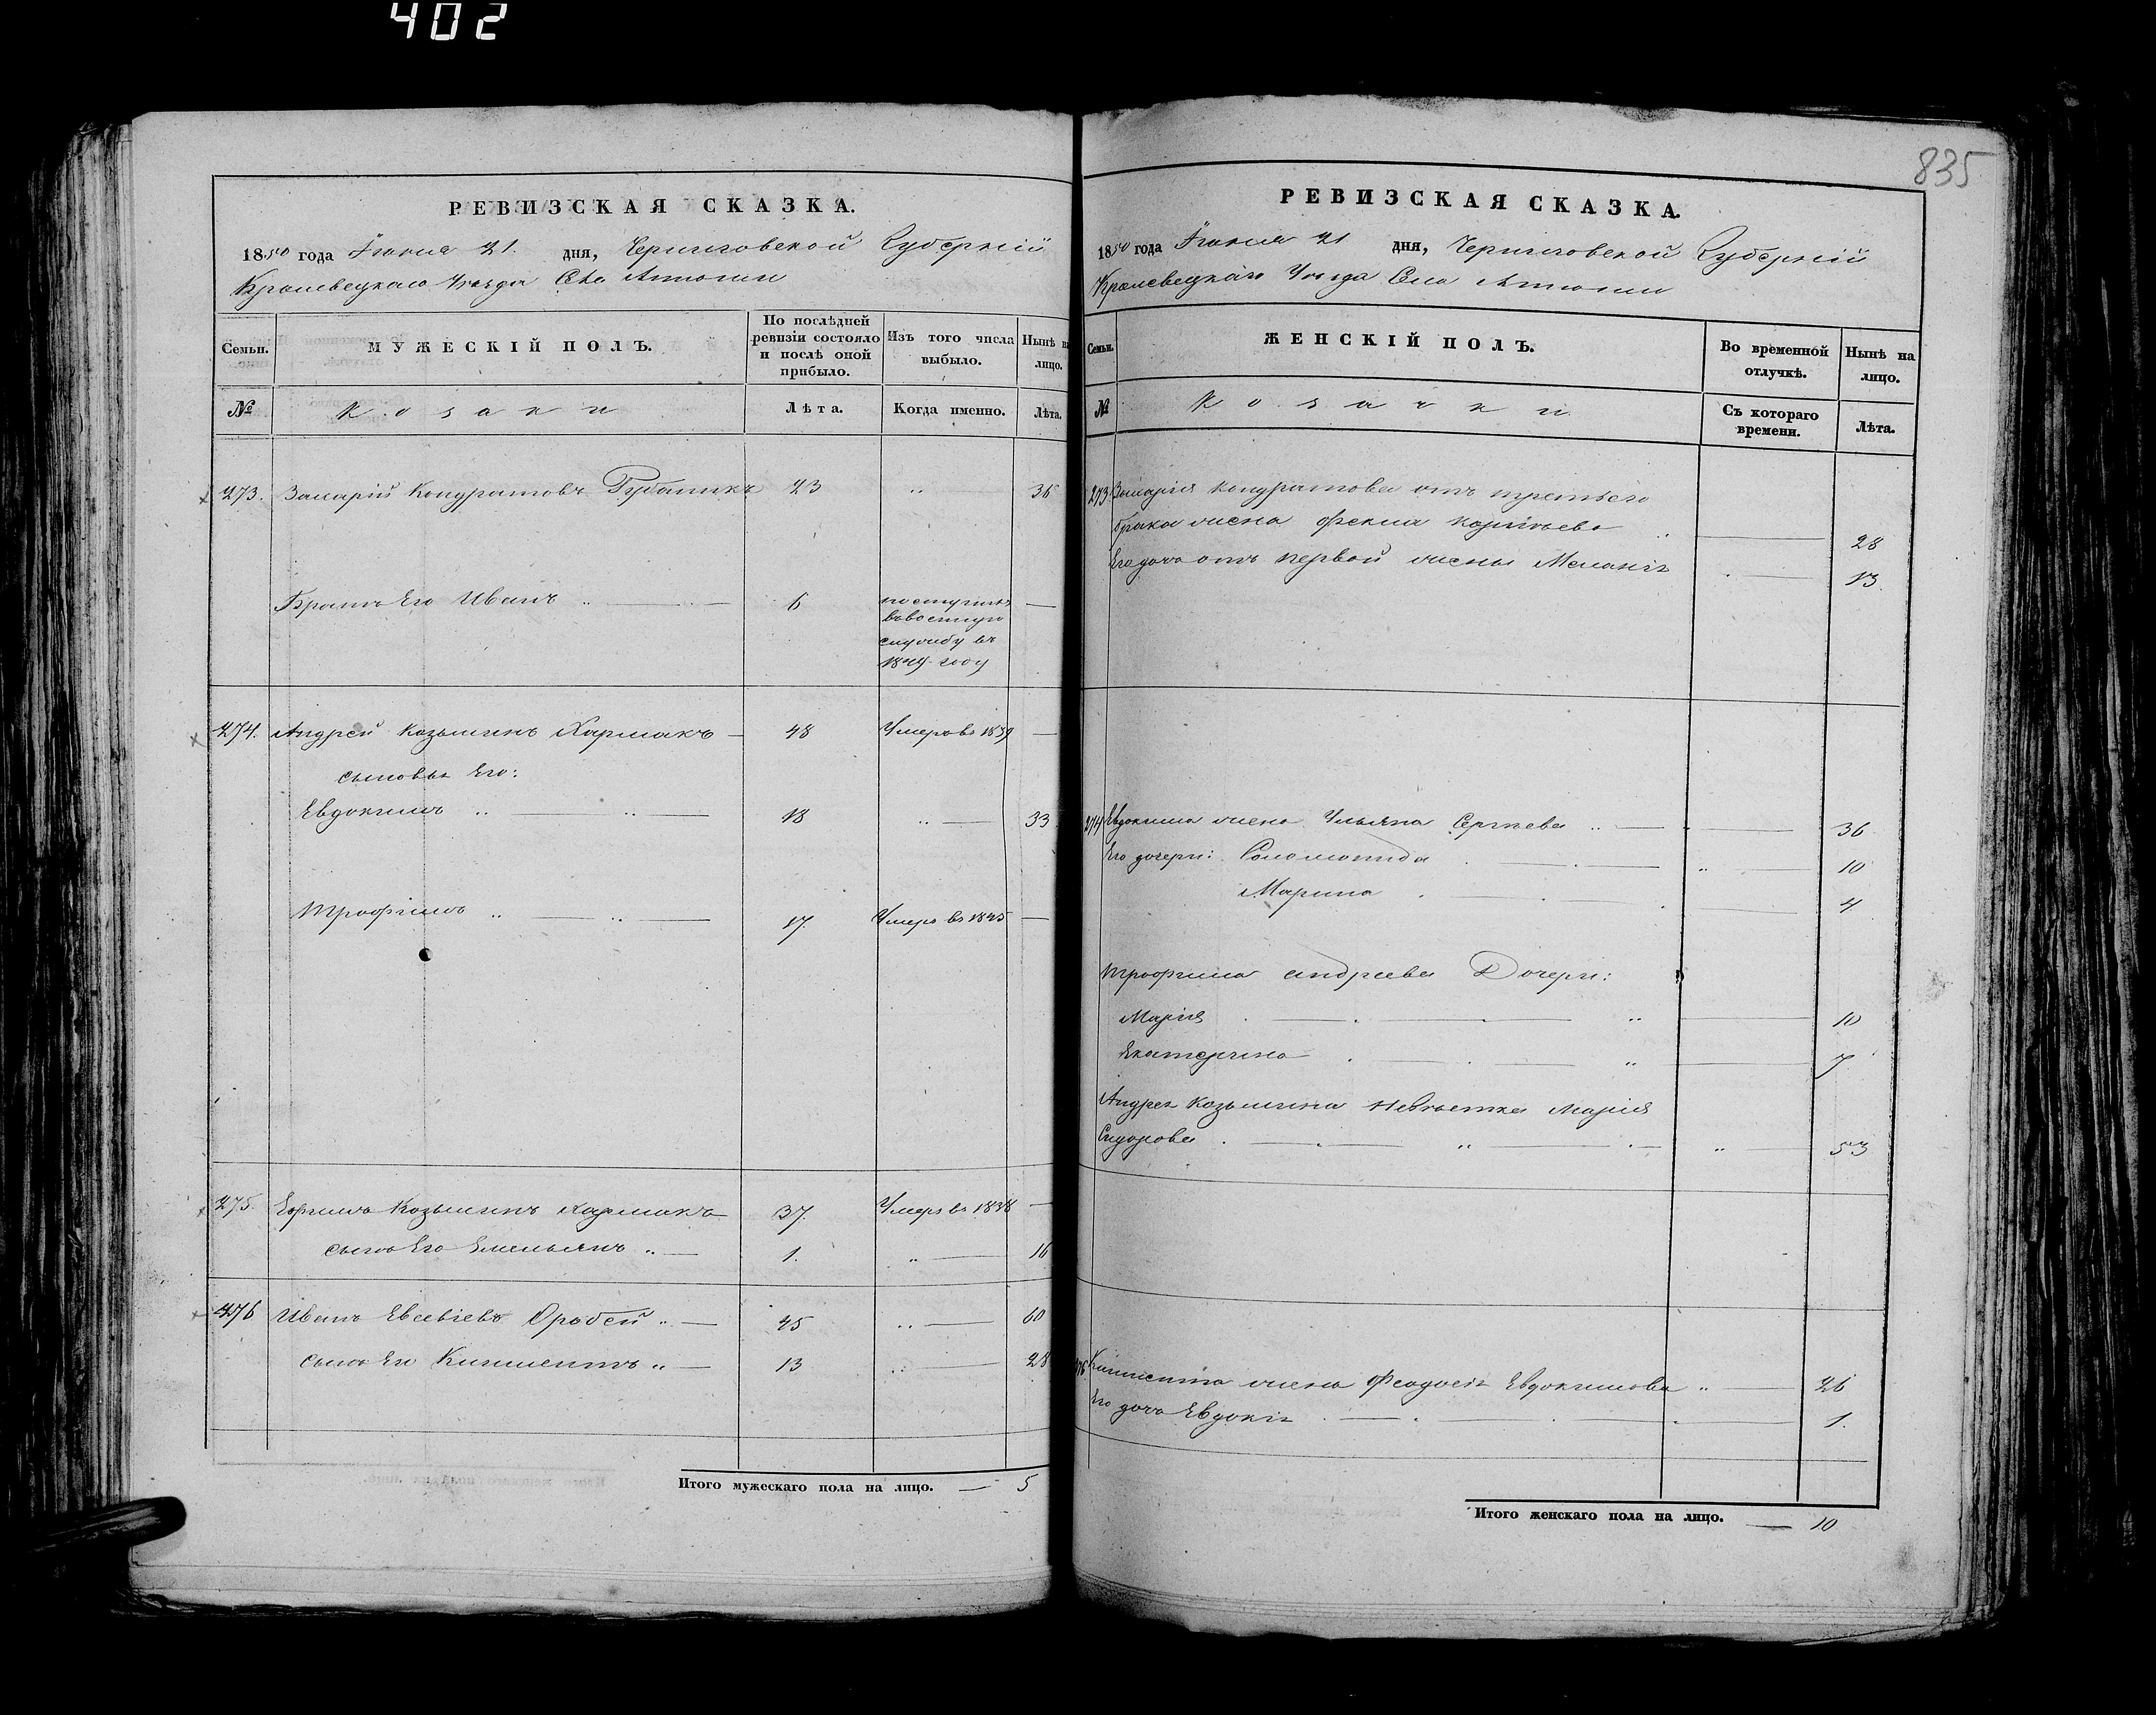 402
835
РЕВИЗСКАЯ СКАЗКА.
1850 года Іюня 21. дня, Черниговской Губерніи
Кролевецкаго Уѣзда Села
Семьи.
МУЖЕСКІЙ ПОЛЪ.
По послѣдней ревизіи состояло и послѣ оной прибыло.
Изъ того числа выбыло.
Нынѣ на лицо.
№
Козаки
Лѣта.
Когда именно.
Лѣта.
273. Захарій Кондратовъ 23 36
Братъ Его Иванъ 6 поступилъ
въ военную
службу въ
году
274. Андрей Козьминъ Хармакъ 48 Умеръ въ 1839
сыновья Его:
Евдокимъ 18 33
Трофимъ 17. Умеръ въ 1845
275. Ефимъ Козьминъ Хармакъ 37. Умеръ въ 1838
сынъ Его Емельянъ 1. 16
276 Иванъ Евсевіевъ 45 60
сынъ Его 13 28
Итого мужескаго пола на лицо. — 5
РЕВИЗСКАЯ СКАЗКА.
1850 года Іюня 21 дня, Черниговской Губерніи
Кролевецкаго Уѣзда Села
Семьи.
ЖЕНСКІЙ ПОЛЪ.
Во временной отлучкѣ.
Нынѣ на лицо.
№
Козачки
Съ котораго времени.
Лѣта.
273. Захарія Кондратова отъ третьего
брака жена 28
Его дочь отъ первой жены Меланія 13.
274 Евдокима жена Ульяна Сергѣева 36
Его дочери: Соломонида 10
Марина 4
Трофима Андреева Дочери:
Марія 10
Екатерина 7
Андрея Козьмина невѣстка Марія
Сидорова 53
276 жена Феодосія Евдокимова 26
Его дочь Евдокія 1.
Итого женскаго пола на лицо. — 10